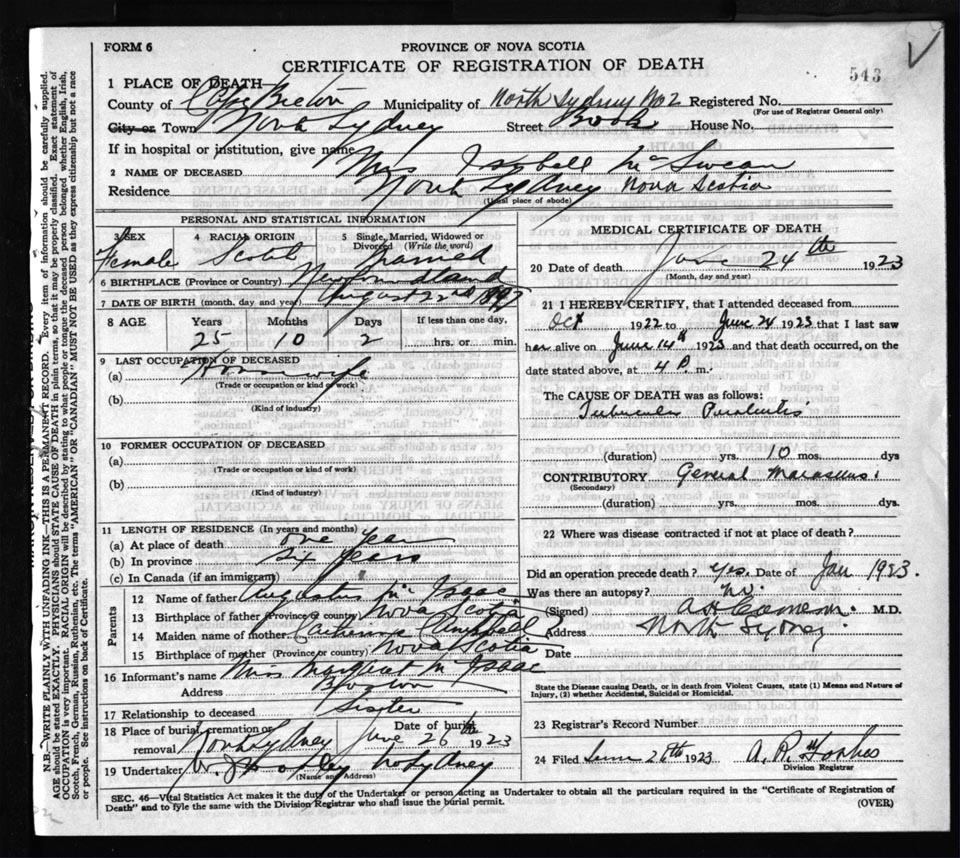 FORM 6
PROVINCE OF NOVA SCOTIA
CERTIFICATE OF REGISTRATION OF DEATH
543
1 PLACE OF DEATH
County of Cape Breton Municipality of North Sydney No 2 Registered No.
(For use of Registrar General only)
City or Town North Sydney Street Brook House No.
If in hospital or institution, give name
2 NAME OF DECEASED Mrs Isabell McSwean
Residence North Sydney Nova Scotia
(Usual place of abode)
PERSONAL AND STATISTICAL INFORMATION
3 SEX 4 RACIAL ORIGIN 5 Single, Married, Widowed or Divorced (Write the word)
Female Scotch Married
6 BIRTHPLACE (Province or Country) Newfoundland
7 DATE OF BIRTH (month, day, and year) August 22nd 1897
8 AGE Years Months Days If less than one day,
25 10 2 hrs. or min.
9 LAST OCCUPATION OF DECEASED
(a) Housewife
(Trade or occupation or kind of work)
(b)
(Kind of industry)
10 FORMER OCCUPATION OF DECEASED
(a)
(Trade or occupation or kind of work)
(b)
(Kind of industry)
11 LENGTH OF RESIDENCE (In years and months)
(a) At place of death one year
(b) In province six years
(c) In Canada (if an immigrant)
Parents
12 Name of father Augustus McIsaac
13 Birthplace of father (Province or country) Nova Scotia
14 Maiden name of mother Catherine Campbell
15 Birthplace of mother (Province or country) Nova Scotia
16 Informant's name Miss Margaret McIsaac
Address
17 Relationship to deceased Sister
18 Place of burial, cremation or removal North Sydney Date of burial June 26th 1923
19 Undertaker No Sydney
(Name and Address)
MEDICAL CERTIFICATE OF DEATH
20 Date of death June 24th 1923
(Month, day and year)
21 I HEREBY CERTIFY, that I attended deceased from
Oct 1922 to June 24 1923 that I last saw
her alive on June 14th 1923 and that death occurred, on the
date stated above, at 4 P. m.
The CAUSE OF DEATH was as follows:
(duration) yrs. 10 mos. days
CONTRIBUTORY General Marasmus.
(Secondary)
(duration) yrs. mos. dys.
22 Where was disease contracted if not at place of death?
Did an operation precede death? Yes. Date of Jan 1923.
Was there an autopsy? No.
(Signed) M.D.
Address North Sydney.
Date
State the Disease causing Death, or in death from Violent Causes, state (1) Means and Nature of
Injury, (2) whether Accidental, Suicidal or Homicidal.
23 Registrar's Record Number
24 Filed June 26th 1923 A. R. Forbes
Division Registrar
SEC. 46—Vital Statistics Act makes it the duty of the Undertaker or person acting as Undertaker to obtain all the particulars required in the "Certificate of Registration of
Death" and to fyle the same with the Division Registrar who shall issue the burial permit.
(OVER)
N.B.—WRITE PLAINLY WITH UNFADING INK—THIS IS A PERMANENT RECORD. Every item of information should be carefully supplied.
AGE should be stated EXACTLY. PHYSICIANS should STATE CAUSE OF DEATH in plain terms, so that it may be properly classified. Exact statement of
OCCUPATION is very important. RACIAL ORIGIN will be described by stating to what people or tongue the deceased person belonged whether English, Irish,
Scotch, French, German, Russian, Ruthenian, etc. The terms "AMERICAN" OR "CANADIAN" MUST NOT BE USED as they express citizenship but not a race
or people. See instructions on back of Certificate.